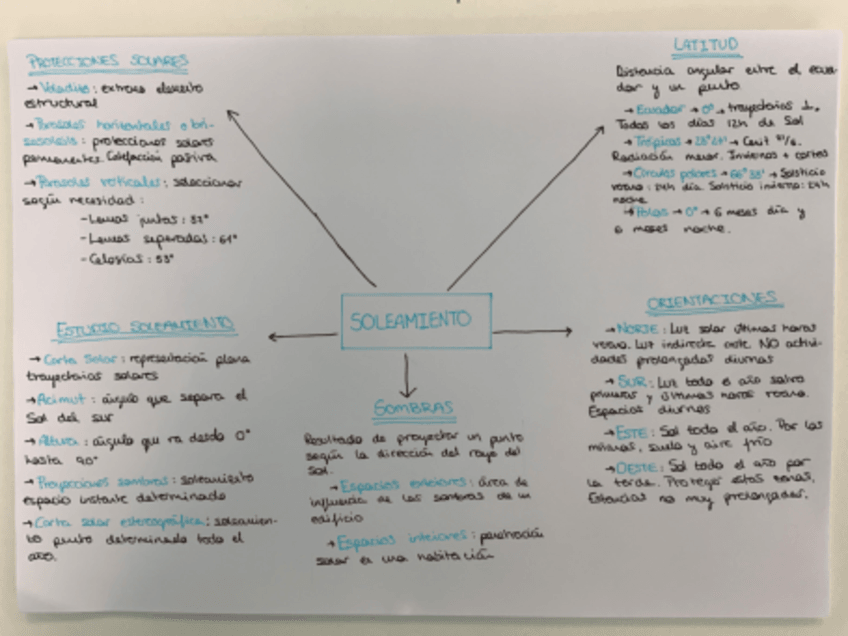 PROTECCIONES SOLARES
→ Voladizo: extremo elemento
estructural
→ Parasoles horizontales o bri-
sesoleils: protecciones solares
permanentes. Calefacción pasiva
→ Parasoles verticales: seleccionar
según necesidad:
- Lamas juntas: 37°
- Lamas separadas: 61°
- Celosías: 53°
LATITUD
Distancia angular entre el ecua-
dor y un punto
→ Ecuador → 0° → trayectorias ⊥.
Todos los días 12h de Sol
→ Trópicos → Cenit
Radiación menor. Inviernos + cortos
→ Círculos polares → 66° 33' → Solsticio
verano: 24h día. Solsticio invierno: 24h
noche
→ Polos → 0° → 6 meses día y
6 meses noche.
SOLEAMIENTO
ESTUDIO SOLEAMIENTO
→ Carta Solar: representación plana
trayectorias solares
→ Acimut: ángulo que separa el
Sol del sur
→ Altura: ángulo que va desde 0°
hasta 90°
→ Proyecciones sombras: soleamiento
espacio instante determinado
→ Carta solar estereográfica: soleamien-
to punto determinado todo el
año.
SOMBRAS
Resultado de proyectar un punto
según la dirección del rayo del
Sol.
→ Espacios exteriores: área de
influencia de las sombras de un
edificio
→ Espacios interiores: penetración
solar en una habitación
ORIENTACIONES
→ NORTE: Luz solar últimas horas
verano. Luz indirecta este NO activi-
dades prolongadas diurnas
→ SUR: Luz todo el año salvo
primeras y últimas horas verano.
Espacios diurnos
→ ESTE: Sol todo el año. Por las
mañanas, suelo y aire frío
→ OESTE: Sol todo el año por
la tarde. Proteger estas zonas.
Estancias no muy prolongadas.